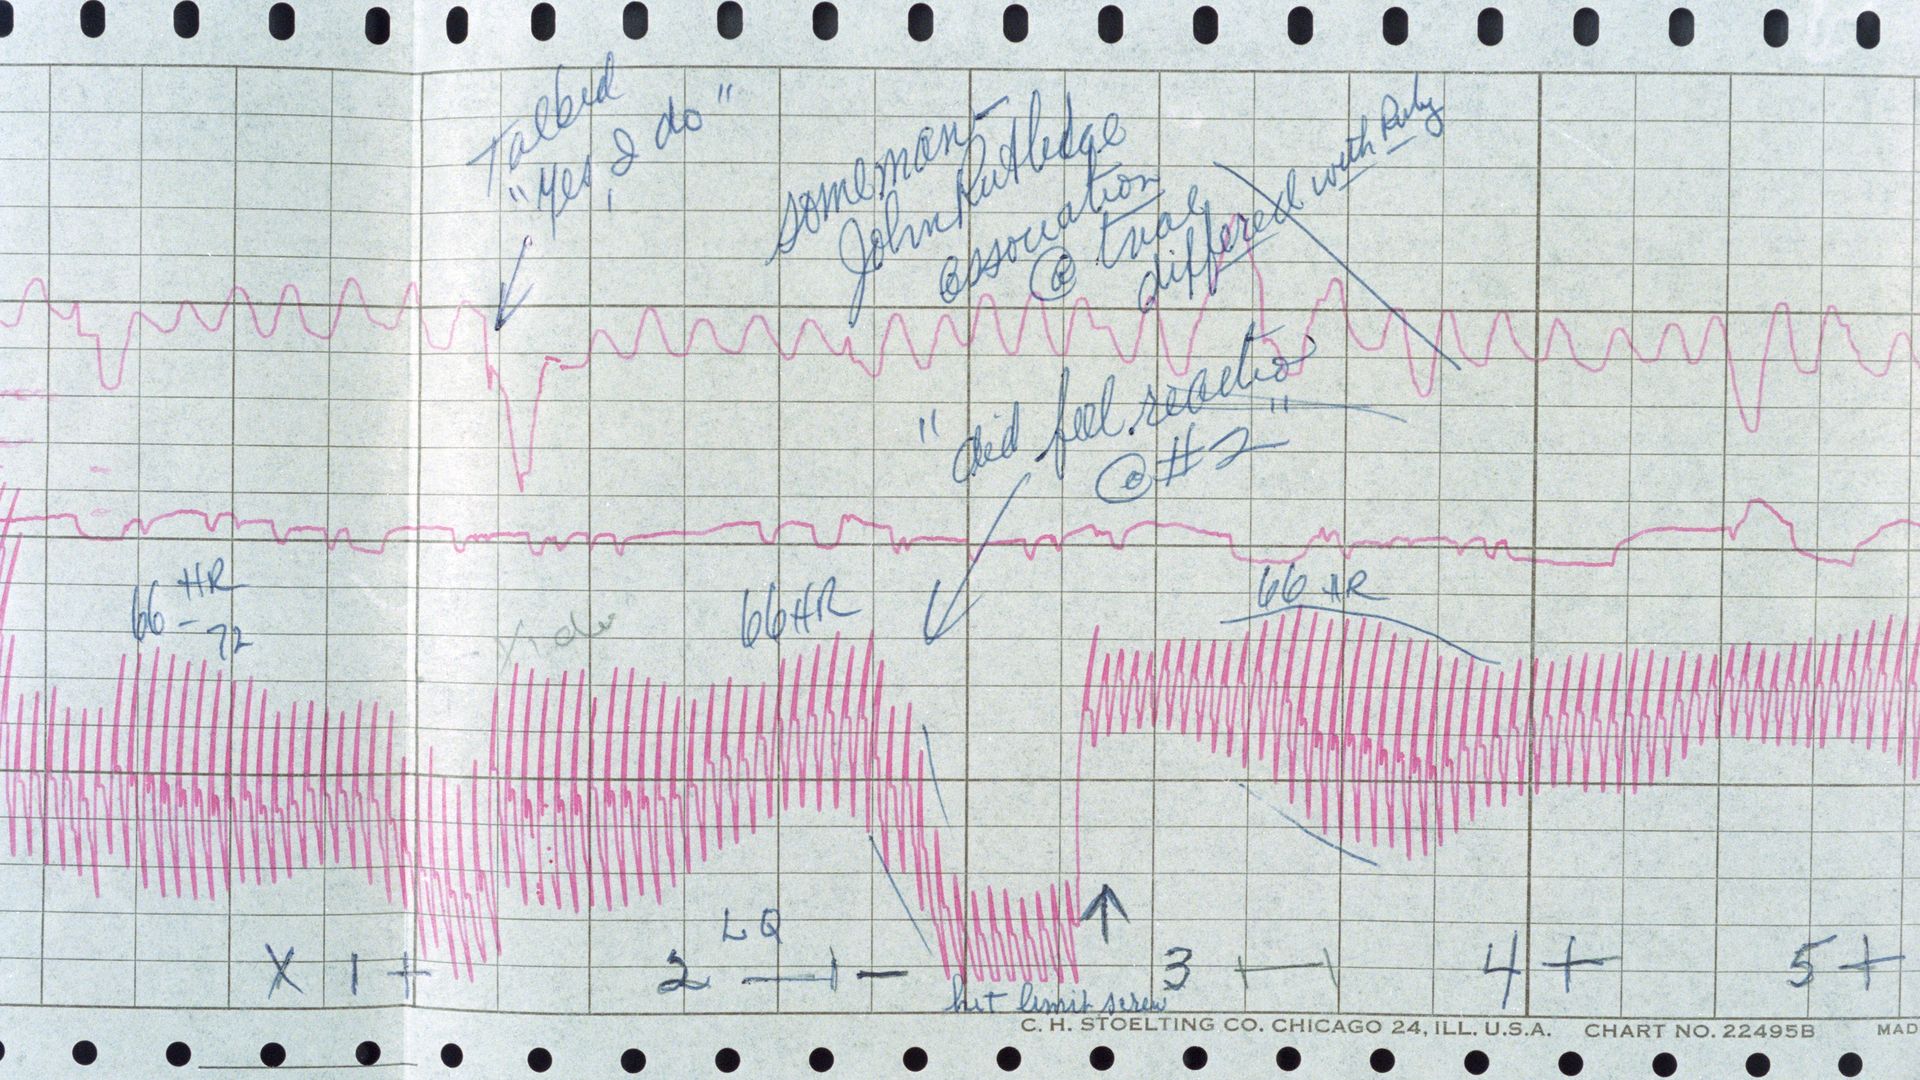 Talked
"Yes I do"
some man
John Rutledge
association
@ trial
differed with Ruby
"did feel reactio"
@ #2
66 - HR
72
66 HR
66 HR
LQ
X 1 +
2 —
3
4 +
5 +
hit limit screw
C. H. STOELTING CO. CHICAGO 24, ILL. U.S.A. CHART NO. 22495B MAD